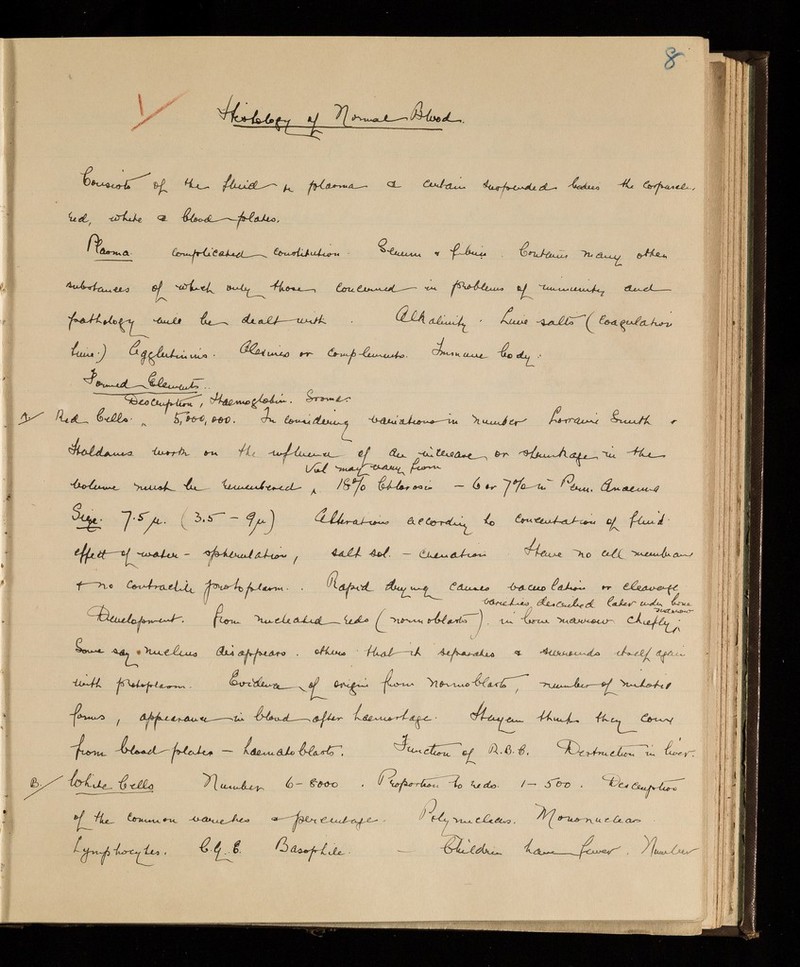 8
Histology of Normal Blood.
Consists of the fluid or plasma & certain suspended bodies the corpuscles,
red, white & blood-plates.
Plasma. Complicated constitution. Serum & fibrin. Contains many other
substances of which only those concerned in problems of immunity and
pathology will be dealt with. Alkalinity. Lime salts (Coagulation
time.) Agglutinins. Alexines or Complements. Immune body.
Formed Elements.
Description, Haemoglobin. Stroma.
A. Red Cells. 5,000,000. In considering variations in number Lorraine Smith &
Haldane's work on the influence of an increase, or shrinkage in the
Vol may vary from
volume must be remembered 18% Chlorosis - 6 or 7% in Pern. Anaemia
Size. 7.5 µ. (3.5 - 9µ) Alterations according to concentration of fluid.
effect of water - spherulation, salt sol. - crenation. Have no cell membrane
& no contractile protoplasm. Rapid drying causes vacuolation or cleavage
varieties described later under bone marrow
Development. from nucleated reds (normoblasts) in bone marrow chiefly;
Some say nucleus disappears. others that it separates & surrounds itself again
with protoplasm. Evidence of origin from normoblasts, number of mitotic
forms, appearance in blood after haemorrhage. Hayem thinks they come
from blood-plates - haematoblasts. Function of R.B.C. Destruction in liver.
B. White Cells Number 6-8000. Proportion to reds. 1-500. Description
of the common varieties & percentages. Polynuclears. Mononuclears
Lymphocytes. C.G.E. Basophile. - Children have fewer. Number